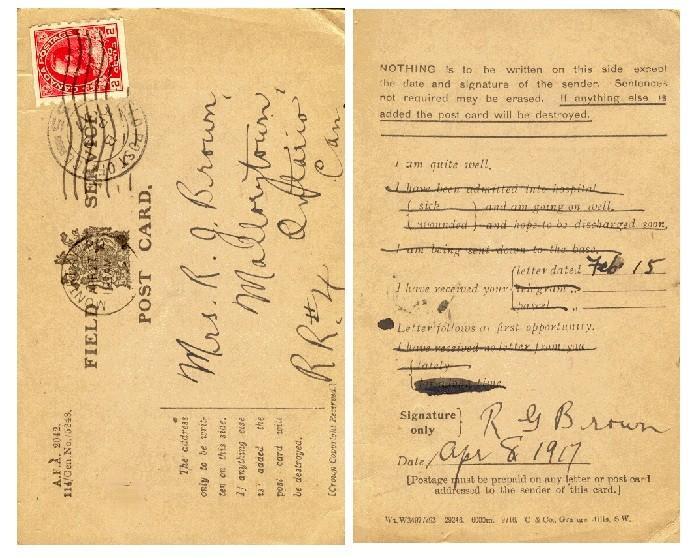 CANADA POSTAGE
2 CENTS 2
FIELD SERVICE
POST CARD.
Mrs. R. G. Brown,
Mallorytown
Ontario
R R #4 Can
The address
only to be writ-
ten on this side.
If anything else
is added the
post card will
be destroyed.
[Crown Copyright Reserved.]
A.F.A. 2042.
114/Gen.No./5248.
NOTHING is to be written on this side except
the date and signature of the sender. Sentences
not required may be erased. If anything else is
added the post card will be destroyed.
I am quite well.
I have been admitted into hospital
sick and am going on well.
wounded and hope to be discharged soon.
I am being sent down to the base
letter dated Feb 15
I have received your telegram ,,
parcel ,,
Letter follows at first opportunity.
I have received no letter from you
lately
for a long time.
Signature
only
R G Brown
Date Apr 8 1917
[Postage must be prepaid on any letter or post card
addressed to the sender of this card.]
29246. 6000m. 9/16. C & Co., Grange Mills, S.W.